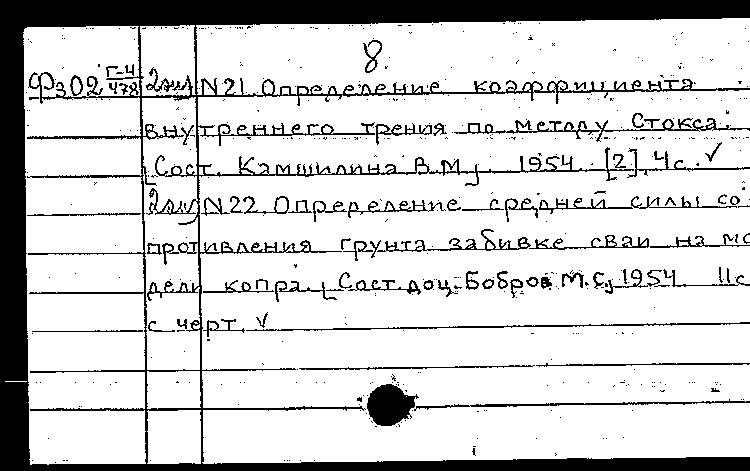 8.
Фз02 Г-4/478 2экз N21. Определение коэффициента
внутреннего трения по методу Стокса.
[Сост. Камшилина В.М.] 1954. [2], 4с. ✓
2экз N22. Определение средней силы со-
противления грунта забивке сваи на мо
дели копра. [Сост. доц. Бобров М.С.] 1954. 11с
с черт. ✓